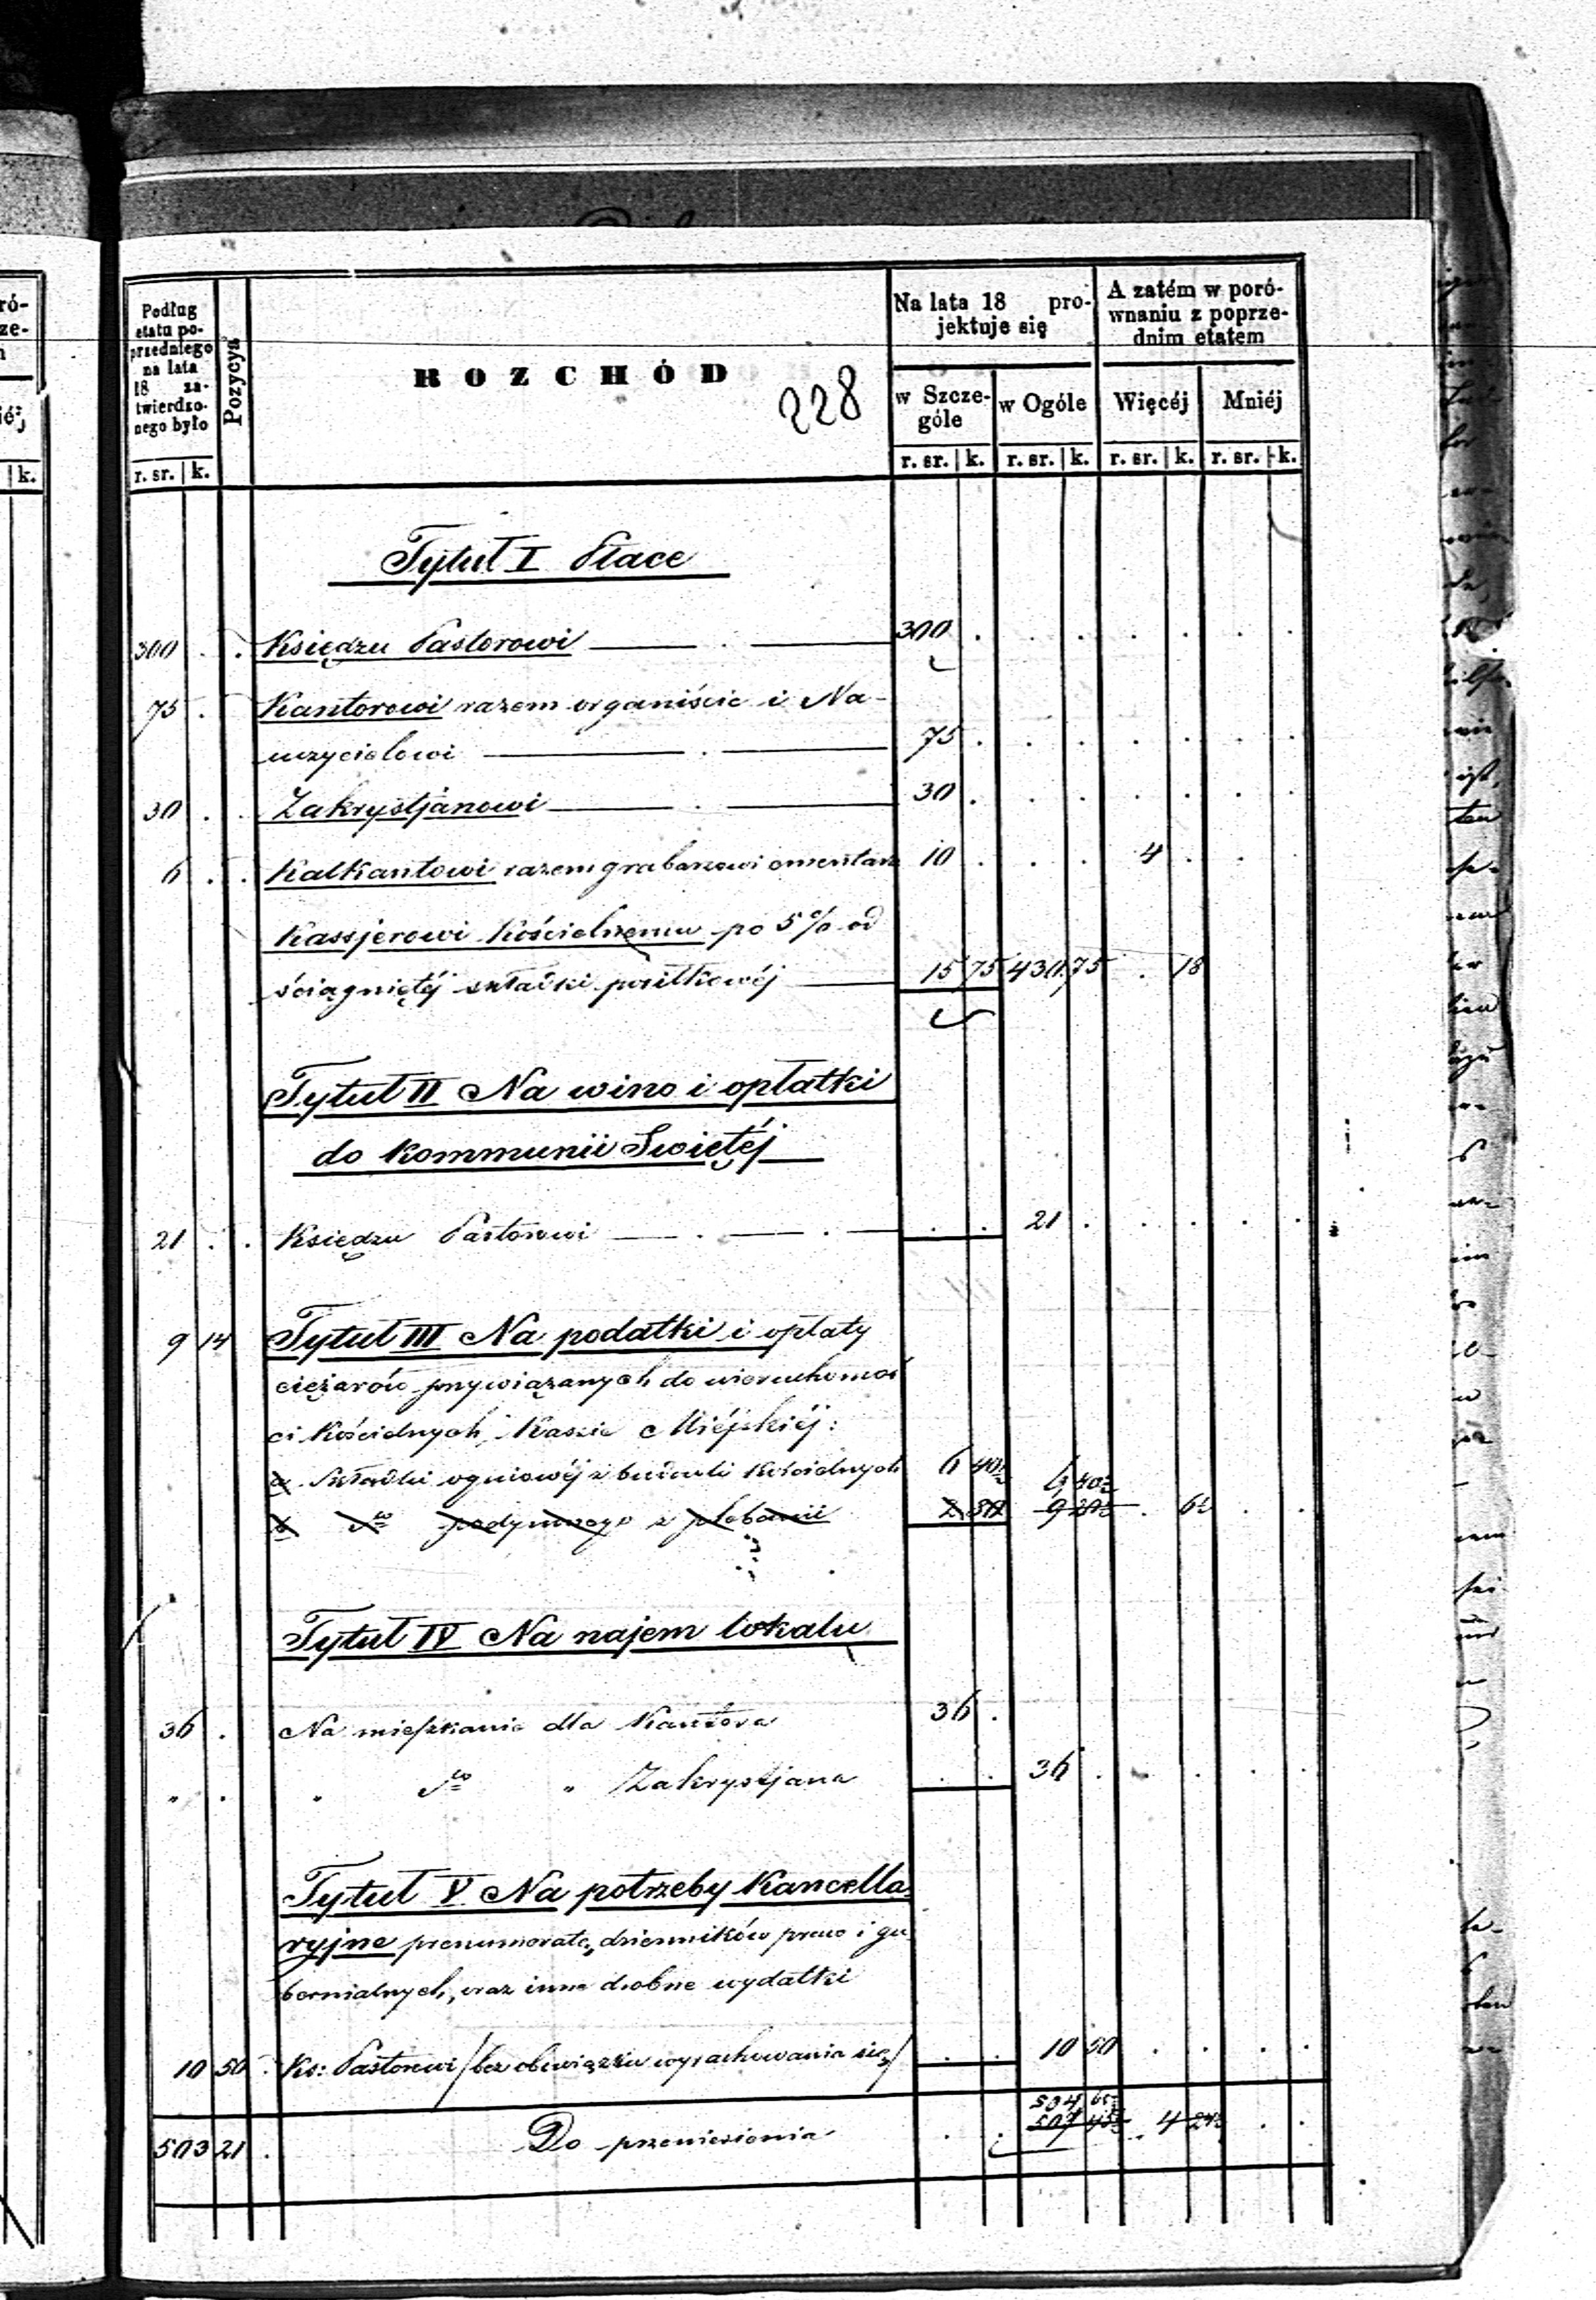 Podług etatu poprzedniego na lata 18 zatwierdzonego było
Pozycya
ROZCHÓD
228
Na lata 18 projektuje się
A zatém w porównaniu z poprzednim etatem
w Szczególe
w Ogóle
Więcéj
Mniéj
r. sr. k. r. sr. k. r. sr. k. r. sr. k. r. sr. k.
Tytuł I Płace
300 . . Księdzu Pastorowi 300 .
75 . Kantorowi razem organiście i Na-
uczycielowi 75 .
30 . . Zakrystjanowi 30 .
6 . . Kalkantowi razem grabarzowi cmentarz 10 . . . 4 .
Kassjerowi Kościelnemu po 5% od
ściągniętéj składki posiłkowéj 15 75 430 75 . 18
Tytuł II Na wino i opłatki
do kommunii Swiętéj
21 . . Księdzu Pastorowi . . 21 .
9 14 Tytuł III Na podatki i opłaty
ciężarów przywiązanych do nieruchomoś
ci Kościelnych, Kassie Miéjskiéj:
a Składki ogniowéj z budowli Kościelnych 6 40½ 6 40½
b dto podymnego z plebanii 2 80 9 20½ . 6½
Tytuł IV Na najem lokalu
36 . Na mieszkanie dla Kantora 36 .
" . " dto " Zakrystjana . . 36 .
Tytuł V Na potrzeby Kancella
ryjne prenumoratę dzienników praw i gu
bernialnych, oraz inne drobne wydatki
10 50 . Ks: Pastorowi / bez obowiązku wyrachowania się / . . 10 50
504 65½
503 21 . Do przeniesienia . . 507 45½ . 4 24½